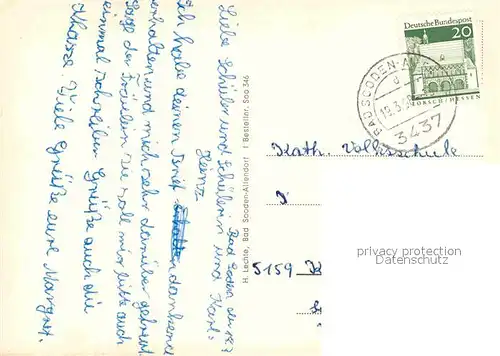 Bad Sooden, den 18.3
Liebe Schüler und Schülerin und Karl-
Heinz
Ich habe deinen Brief dankend
erhalten und mich sehr darüber gefreut.
Sagt der Fräulein sie soll mir bitte auch
einmal schreiben Grüße auch die
Klasse. Viele Grüße eure Margret.
H. Lechte, Bad Sooden-Allendorf † Bestellnr. Soo 346
Deutsche Bundespost
20
LORSCH/HESSEN
BAD SOODEN-A
d
18.3.
3437
Kath. Volksschule
5159
privacy protection
Datenschutz